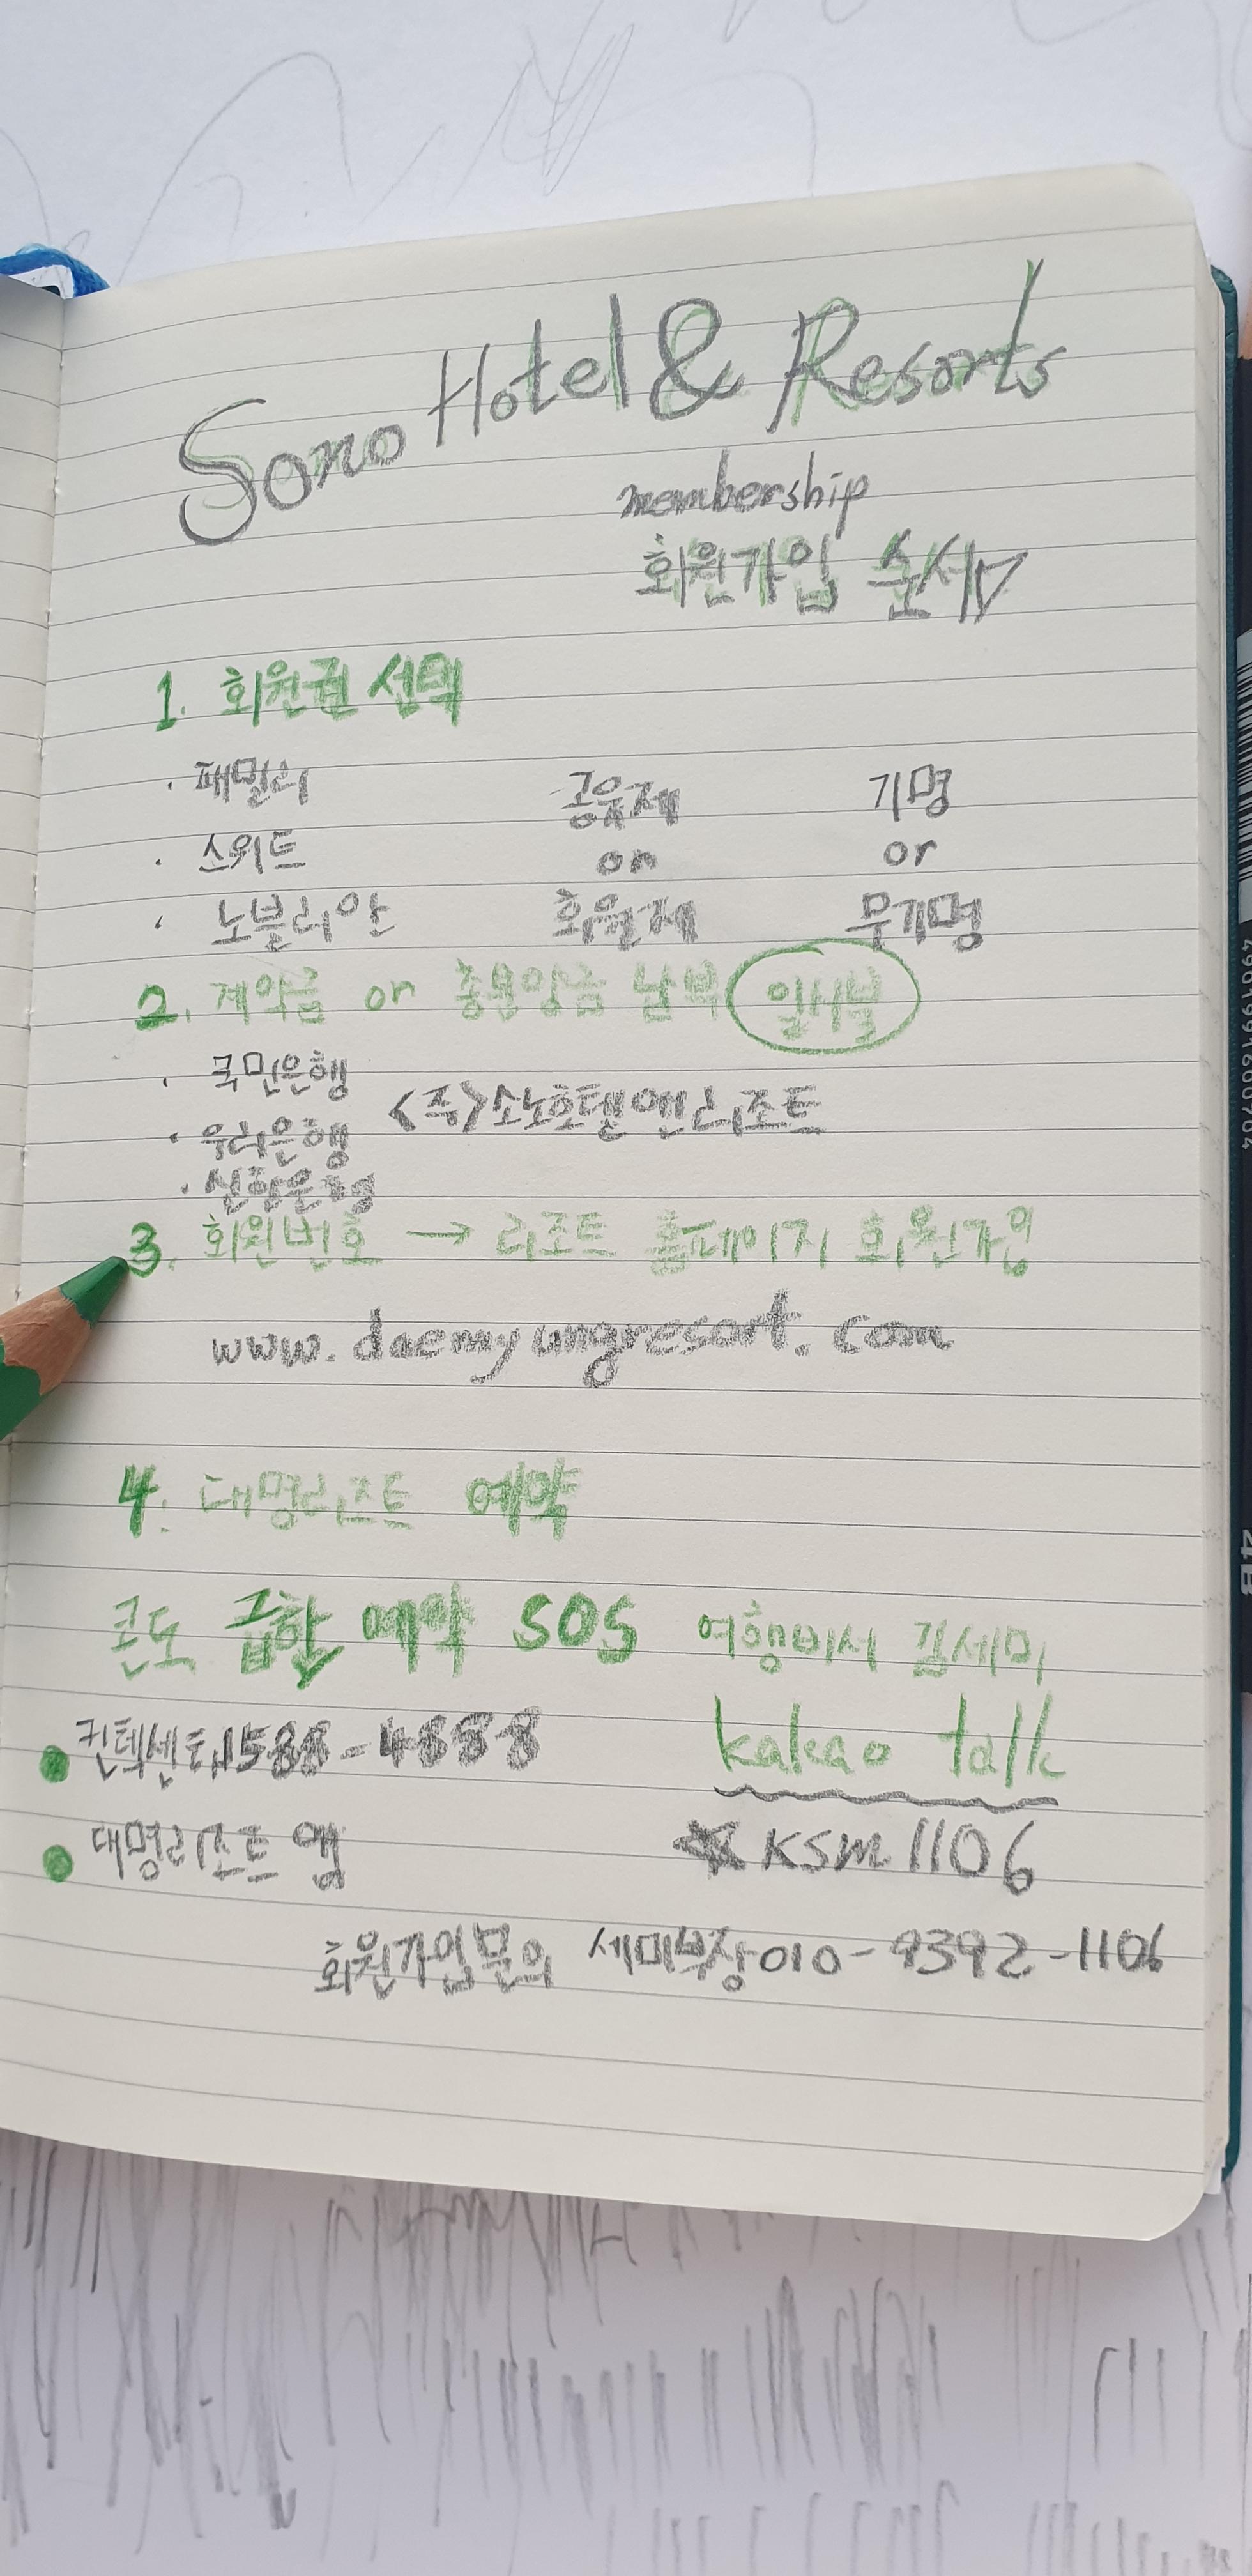 Sono Hotel & Resorts
membership
회원가입 순서
1. 회원권 선택
· 패밀리 공유제 기명
· 스위트 or or
· 노블리안 회원제 무기명
2. 계약금 or 총분양금 납부 일시불
· 국민은행
· 우리은행 <주>소노호텔앤리조트
· 신한은행
3. 회원번호 → 리조트 홈페이지 회원가입
www.daemyungresort.com
4. 대명리조트 예약
콘도 급할 예약 SOS 여행비서 김세미
컨텍센터 1588-4888 kakao talk
대명리조트 앱 KSM1106
회원가입문의 세미부장 010-9392-1106
4B